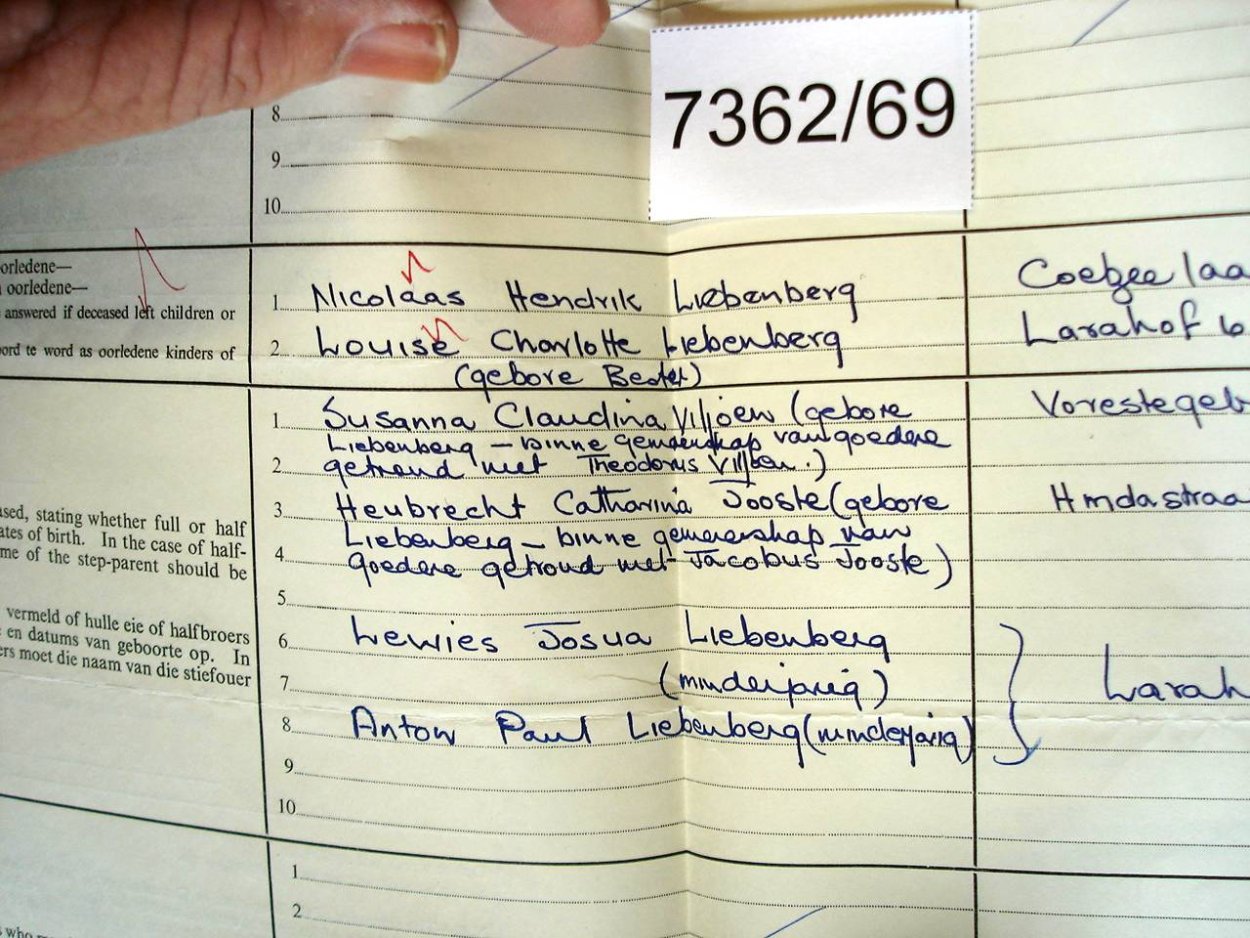 7362/69
8
9
10
oorledene—
oorledene—
answered if deceased left children or
word te word as oorledene kinders of
1 Nicolaas Hendrik Liebenberg Coetzee laa
2 Louise Charlotte Liebenberg Larahof 6
(gebore Bester)
1 Susanna Claudina Viljoen (gebore Vorestegeb
Liebenberg – binne gemeenskap van goedere
2 getroud met Theodorus Viljoen.)
3 Heubrecht Catharina Jooste (gebore
Liebenberg – binne gemeenskap van
4 goedere getroud met Jacobus Jooste)
ased, stating whether full or half
ates of birth. In the case of half-
me of the step-parent should be
5
6 Lewies Josua Liebenberg
7 (minderjarig) Larah
8 Anton Paul Liebenberg (minderjarig)
vermeld of hulle eie of halfbroers
en datums van geboorte op. In
ers moet die naam van die stiefouer
9
10
1
2